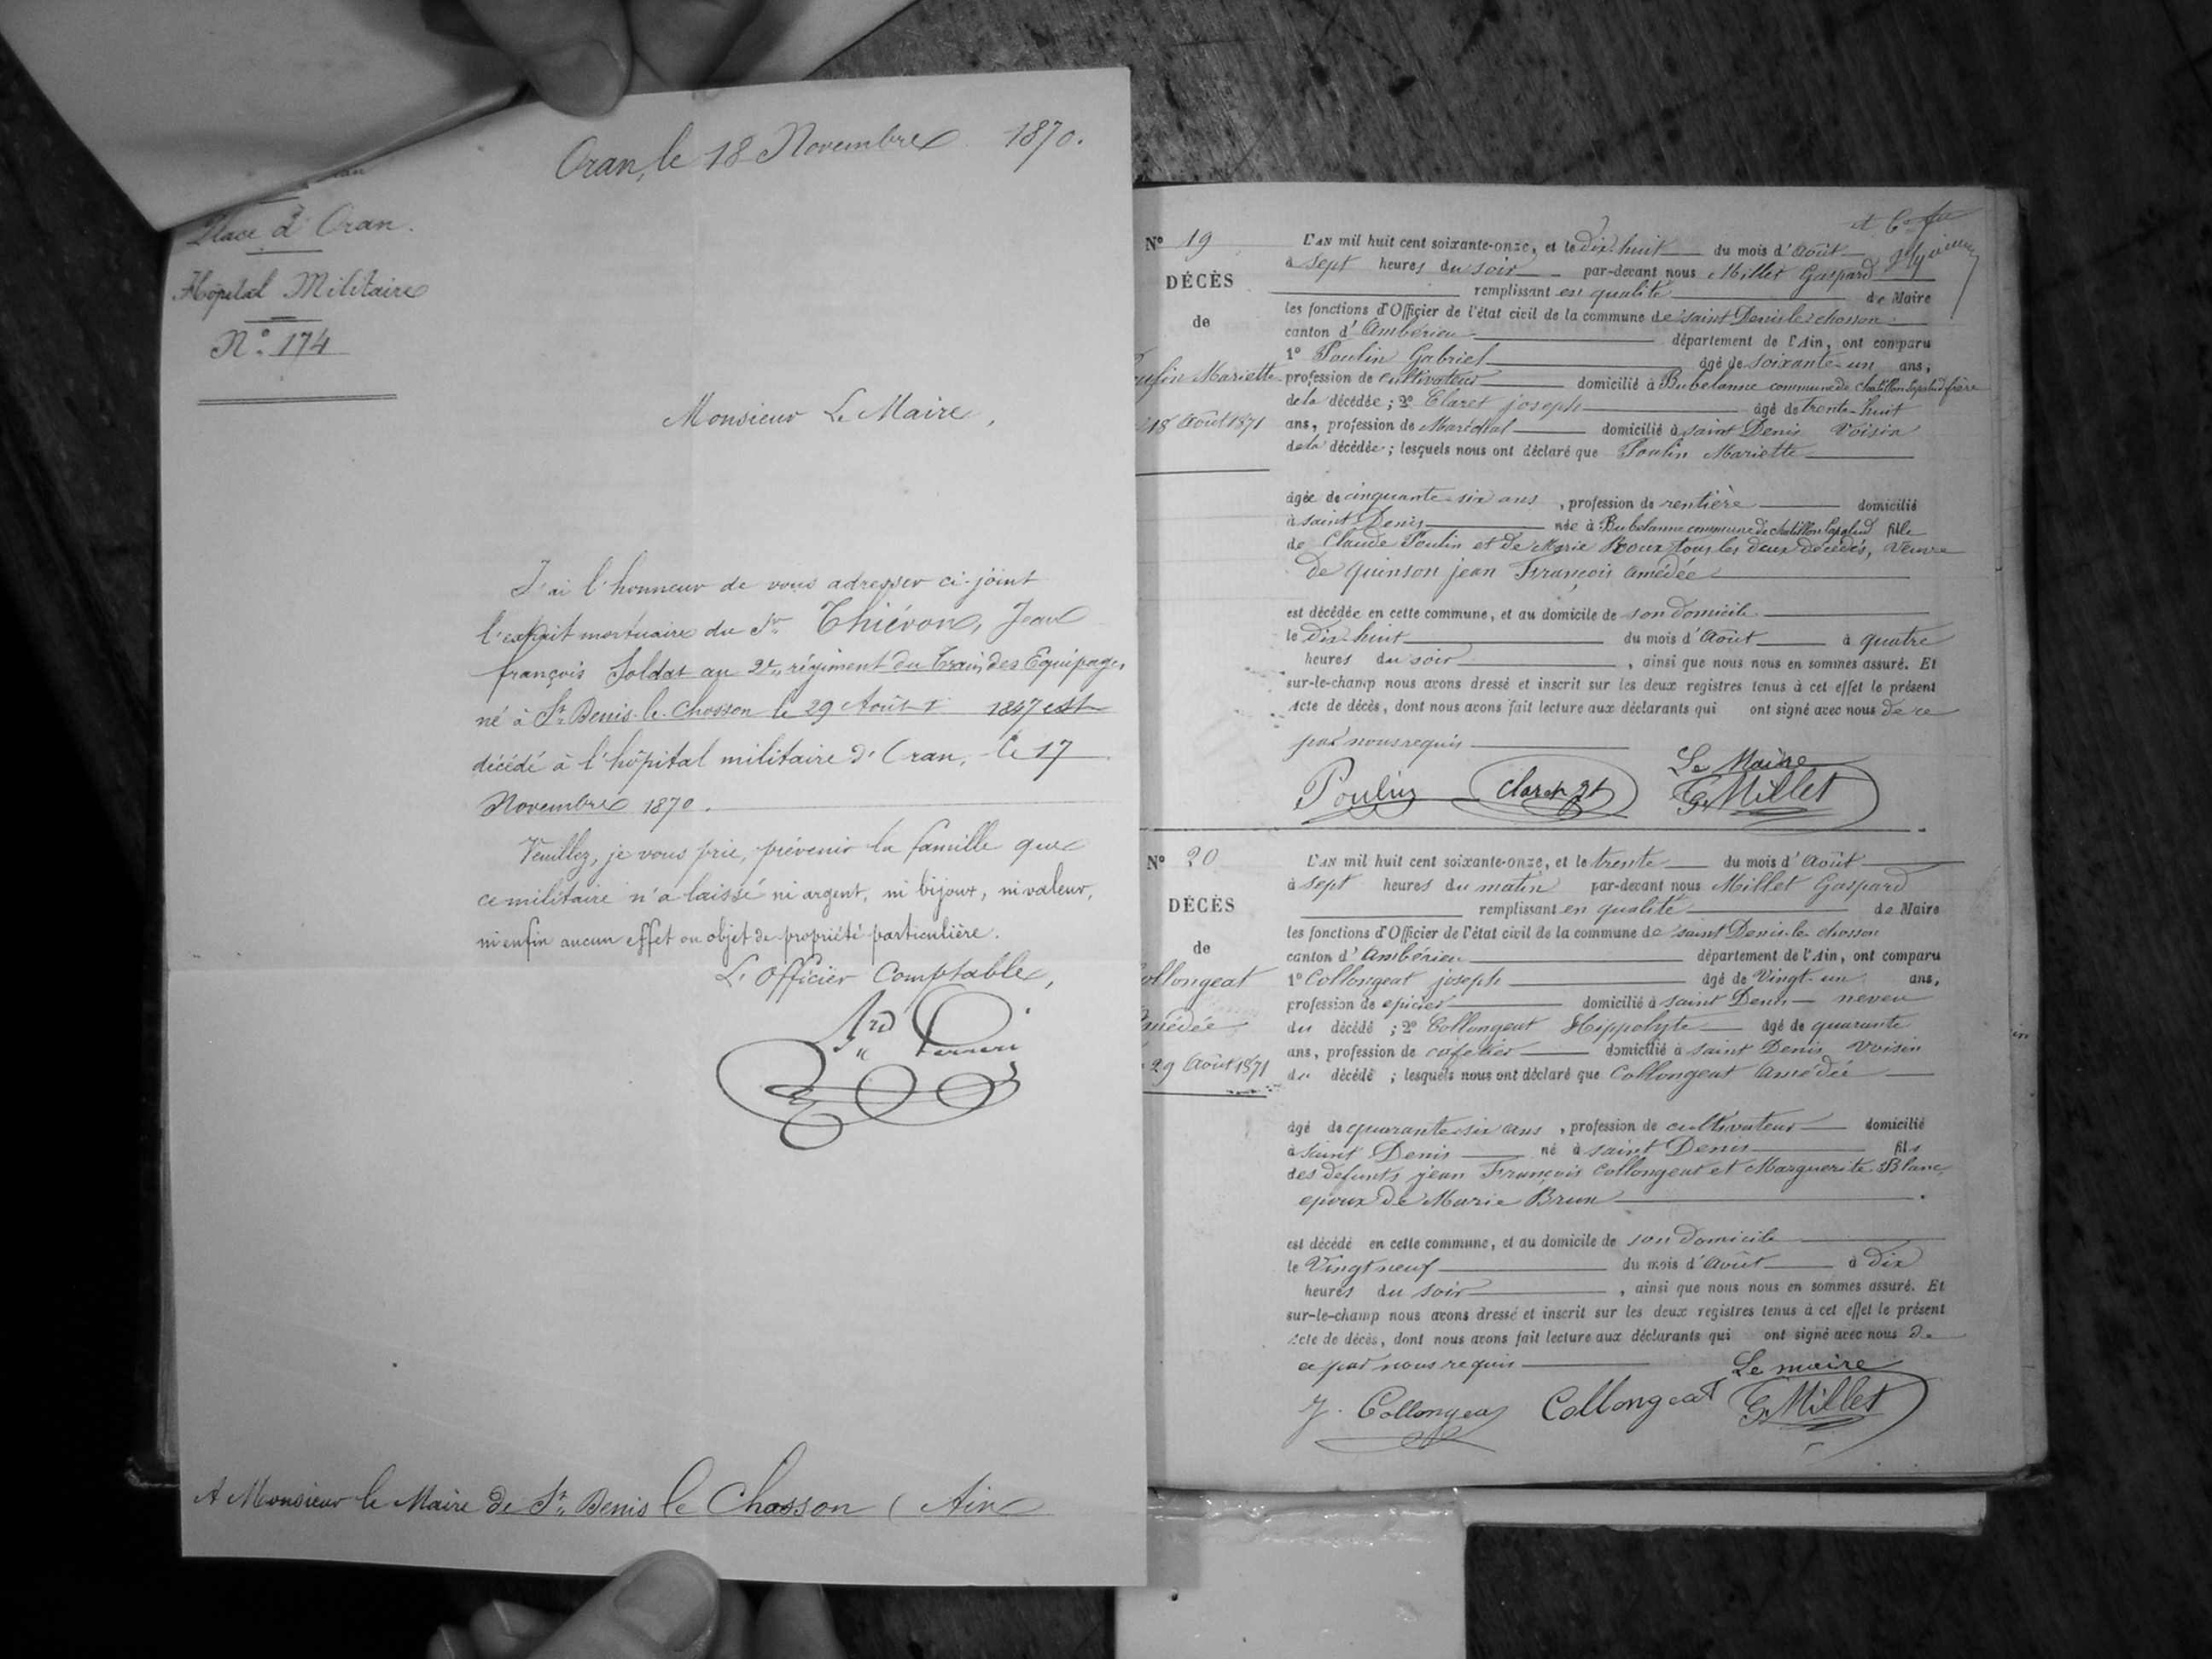 Oran, le 18 Novembre 1870.
Place d'Oran.
Hôpital Militaire
N° 174
Monsieur Le Maire,
J'ai l'honneur de vous adresser ci-joint
l'extrait mortuaire du Sr Thiévon, Jean
françois Soldat au 2e régiment du Train des Equipages
né à St Denis-le-Chosson le 29 Août 1847 est
décédé à l'hôpital militaire d'Oran, le 17
Novembre 1870.
Veuillez, je vous prie, prévenir la famille que
ce militaire n'a laissé ni argent, ni bijoux, ni valeur,
ni enfin aucun effet ou objet de propriété particulière.
L'Officier Comptable,
A Monsieur le Maire de St Denis le Chosson (Ain
N° 19
DÉCÈS
de
Mariette
18 Août 1871
L'AN mil huit cent soixante-onze, et le dix-huit du mois d'Août
à sept heures du soir par-devant nous Millet Gaspard
remplissant en qualité de Maire
les fonctions d'Officier de l'état civil de la commune de saint Denis le chosson
canton d'Ambérieu département de l'Ain, ont comparu
1° Poulin Gabriel âgé de soixante-un ans,
profession de cultivateur domicilié à Bubelanne commune de chatillon lapalud frère
de la décédée ; 2° Claret joseph âgé de trente-huit
ans, profession de Maréchal domicilié à saint Denis voisin
de la décédée ; lesquels nous ont déclaré que Poulin Mariette
âgée de cinquante-six ans, profession de rentière domicilié
à saint Denis née à Bubelanne commune de chatillon lapalud fille
de Claude Poulin et de Marie Roux tous les deux décédés, veuve
de quinson jean François Amédée
est décédée en cette commune, et au domicile de son domicile
le Dix-huit du mois d'Août à quatre
heures du soir, ainsi que nous nous en sommes assuré. Et
sur-le-champ nous avons dressé et inscrit sur les deux registres tenus à cet effet le présent
Acte de décès, dont nous avons fait lecture aux déclarants qui ont signé avec nous de ce
par nous requis
Le Maire
Poulin Claret GMillet
N° 20
DÉCÈS
de
ollongeat
médée
29 Août 1871
L'AN mil huit cent soixante-onze, et le trente du mois d'Août
à sept heures du matin par-devant nous Millet Gaspard
remplissant en qualité de Maire
les fonctions d'Officier de l'état civil de la commune de saint Denis-le-chosson
canton d'Ambérieu département de l'Ain, ont comparu
1° Collongeat joseph âgé de Vingt-un ans,
profession de epicier domicilié à saint Denis neveu
du décédé ; 2° Collongeat Hippolyte âgé de quarante
ans, profession de cafetier domicilié à saint Denis voisin
du décédé ; lesquels nous ont déclaré que Collongeat Amédée
âgé de quarante-six ans, profession de cultivateur domicilié
à saint Denis né à saint Denis fils
des defunts jean François Collongeat et Marguerite Blanc,
epoux de Marie Brun
est décédé en cette commune, et au domicile de son domicile
le Vingt neuf du mois d'Août à dix
heures du soir, ainsi que nous nous en sommes assuré. Et
sur-le-champ nous avons dressé et inscrit sur les deux registres tenus à cet effet le présent
Acte de décès, dont nous avons fait lecture aux déclarants qui ont signé avec nous de
ce par nous requis
Le maire
J. Collongeat Collongeat GMillet